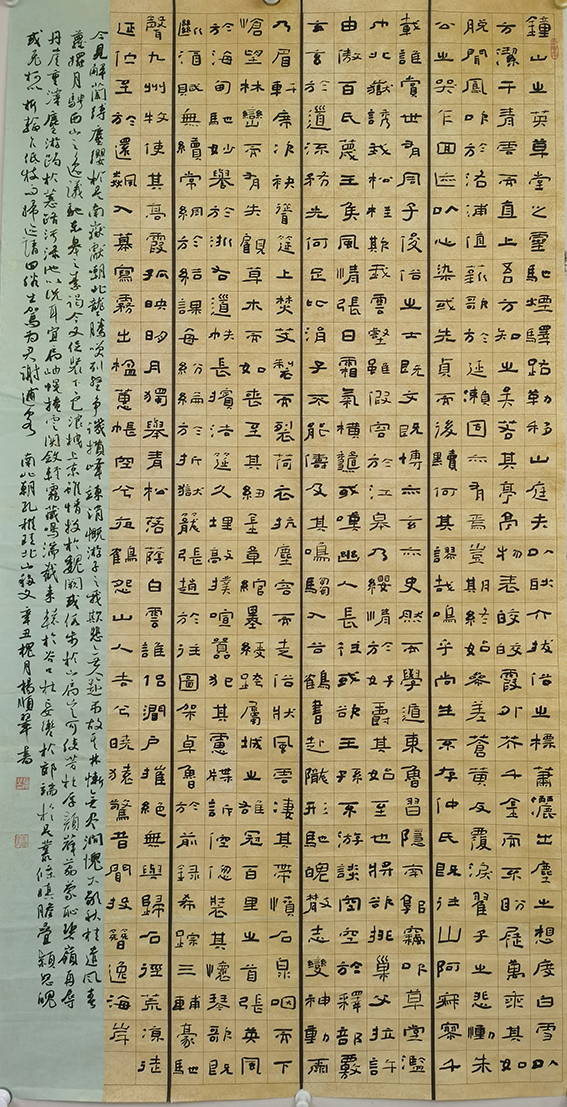 鐘山之英草堂之靈馳煙驛路勒移山庭夫以耿介拔俗之標蕭灑出塵之想度白雪以
方潔干青雲而直上吾方知之矣若其亭亭物表皎皎霞外芥千金而不盼屣萬乘其如
脫聞鳳吹於洛浦值薪歌於延瀨固亦有焉豈期終始參差蒼黃反覆淚翟子之悲慟朱
公之哭乍回迹以心染或先貞而後黷何其謬哉嗚呼尚生不存仲氏既往山阿寂寥千
載誰賞世有周子俊俗之士既文既博亦玄亦史然而學遁東魯習隱南郭竊吹草堂濫
巾北嶽誘我松桂欺我雲壑雖假容於江皋乃纓情於好爵其始至也將欲排巢父拉許
由傲百氏蔑王侯風情張日霜氣橫秋或嘆幽人長往或怨王孫不游談空空於釋部覈
玄玄於道流務光何足比涓子不能儔及其鳴騶入谷鶴書赴隴形馳魄散志變神動爾
乃眉軒席次袂聳筵上焚芰製而裂荷衣抗塵容而走俗狀風雲淒其帶憤石泉咽而下
愴望林巒而有失顧草木而如喪至其紐金章綰墨綬跨屬城之雄冠百里之首張英風
於海甸馳妙譽於浙右道帙長擯法筵久埋敲撲喧囂犯其慮牒訴倥傯裝其懷琴歌既
斷酒賦無續常綢繆於結課每紛綸於折獄籠張趙於往圖架卓魯於前錄希蹤三輔豪馳
聲九州牧使其高霞孤映明月獨舉青松落蔭白雲誰侶澗戶摧絕無與歸石徑荒涼徒
延佇至於還飆入幕寫霧出楹蕙帳空兮夜鶴怨山人去兮曉猿驚昔聞投簪逸海岸
今見解蘭縛塵纓於是南嶽獻嘲北隴騰笑列壑爭譏攢峰竦誚慨游子之我欺悲無人以赴弔故其林慚無盡澗愧不歇秋桂遣風春
蘿擺月騁西山之逸議馳東皋之素謁今又促裝下邑浪栧上京雖情投於魏闕或假步於山扃豈可使芳杜厚顏薜荔蒙恥碧嶺再辱
丹崖重滓塵游躅於蕙路污淥池以洗耳宜扃岫幌掩雲關斂輕霧藏鳴湍截來轅於谷口杜妄轡於郊端於是叢條瞋膽疊穎怒魄
或飛柯以折輪乍低枝而掃迹請回俗士駕為君謝逋客 南北朝孔稚珪北山移文 辛丑槐月楊順翠書